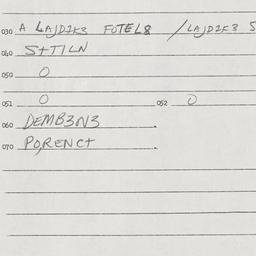 030 A LAJD2K3 FOTEL8 /LAJD2K3 S
040 S+TILN
050 O
051 O 052 O
060 DEMB3N3
070 PORENCT